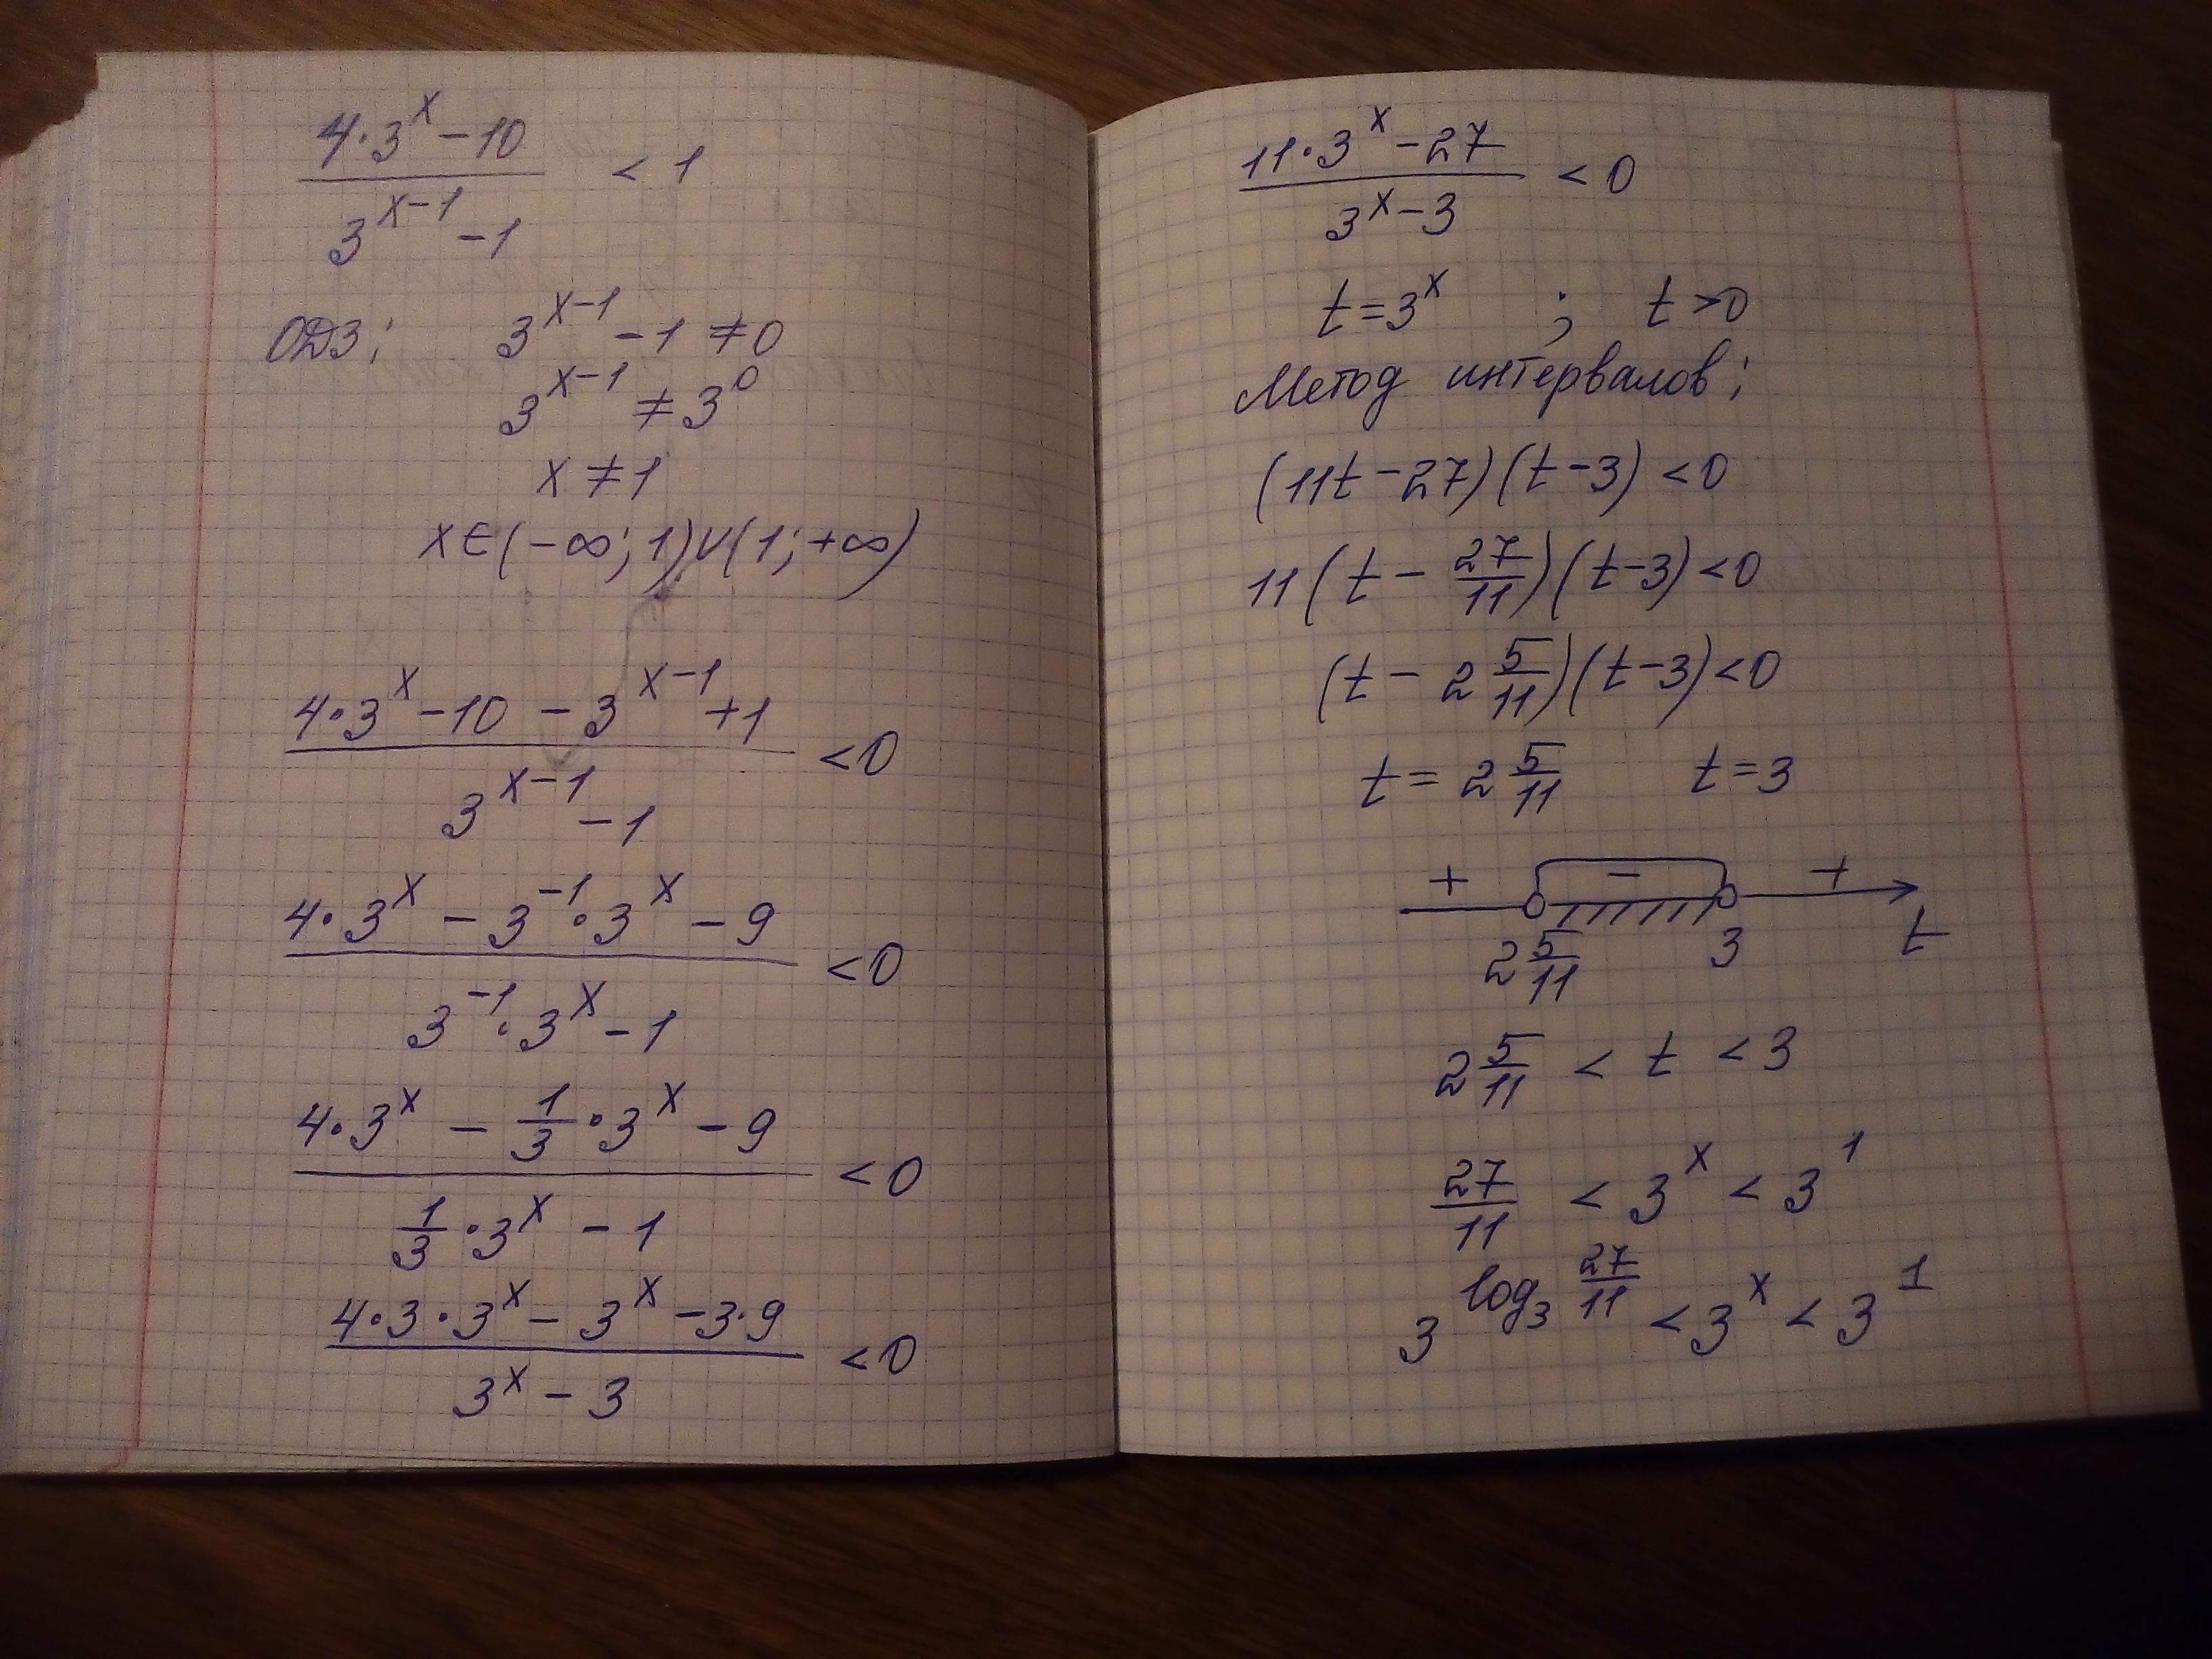 (4·3^x − 10)/(3^(x−1) − 1) < 1
ОДЗ: 3^(x−1) − 1 ≠ 0
3^(x−1) ≠ 3^0
x ≠ 1
x ∈ (−∞; 1) ∪ (1; +∞)
(4·3^x − 10 − 3^(x−1) + 1)/(3^(x−1) − 1) < 0
(4·3^x − 3^(−1)·3^x − 9)/(3^(−1)·3^x − 1) < 0
(4·3^x − 1/3·3^x − 9)/(1/3·3^x − 1) < 0
(4·3·3^x − 3^x − 3·9)/(3^x − 3) < 0
(11·3^x − 27)/(3^x − 3) < 0
t = 3^x ; t > 0
Метод интервалов:
(11t − 27)(t − 3) < 0
11(t − 27/11)(t − 3) < 0
(t − 2 5/11)(t − 3) < 0
t = 2 5/11 t = 3
+ − +
2 5/11 3 t
2 5/11 < t < 3
27/11 < 3^x < 3^1
3^(log_3 27/11) < 3^x < 3^1